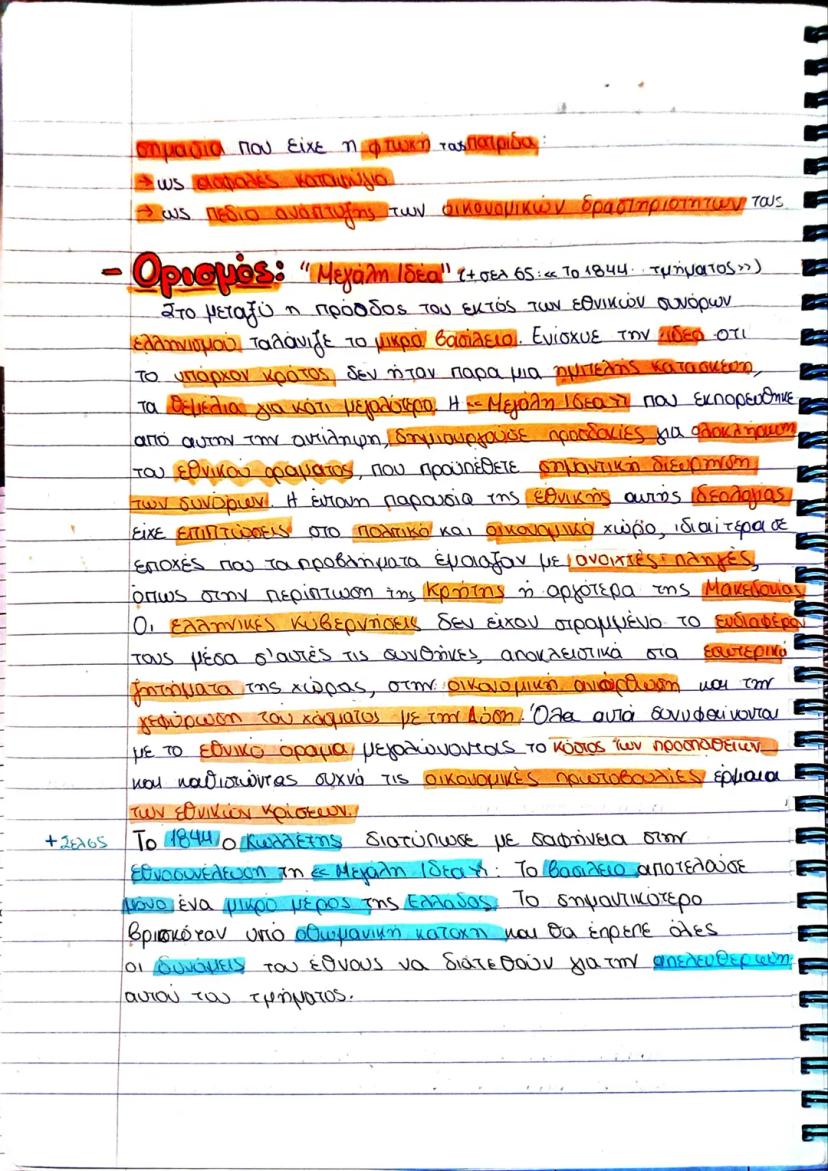 σημασία που είχε η φτωχή τους πατρίδα:
→ ως ασφαλές καταφύγιο
→ ως πεδίο ανάπτυξης των οικονομικών δραστηριοτήτων τους
- Ορισμός: "Μεγάλη Ιδέα" (+ σελ 65: «Το 1844 τμήματος»)
Στο μεταξύ η πρόοδος του εκτός των εθνικών συνόρων
ελληνισμού ταλάνιζε το μικρό βασίλειο. Ενίσχυε την ιδέα οτι
το υπάρχον κράτος δεν ήταν παρα μια ημιτελής κατασκευή,
τα θεμέλια για κάτι μεγαλύτερο. Η «Μεγάλη Ιδέα» που εκπορεύθηκε
από αυτην την αντίληψη, δημιουργούσε προσδοκίες για ολοκλήρωση
του εθνικού οραματος, που προϋπέθετε σημαντική διεύρηνση
των συνόρων. Η έντονη παρουσία της εθνικής αυτής ιδεολογίας
είχε επιπτώσεις στο πολιτικό και οικονομικό χώρο, ιδιαίτερα σε
εποχές που τα προβλήματα έμοιαζαν με ανοιχτές πληγές,
όπως στην περίπτωση της Κρήτης ή αργότερα της Μακεδονίας
Οι ελληνικές κυβερνήσεις δεν είχαν στραμμένο το ενδιαφέρο
τους μέσα σ'αυτές τις συνθήκες, αποκλειστικά στα εσωτερικά
ζητήματα της χώρας, στην οικονομική ανόρθωση και την
γεφύρωση του χάσματος με την Δύση. Όλα αυτά συνυφαίνονται
με το εθνικό όραμα μεγαλώνοντας το κόστος των προσπαθειών
και καθιστώντας συχνά τις οικονομικές πρωτοβουλίες έρμαια
των εθνικών κρίσεων.
+ Σελ 65 Το 1844 ο Κωλλέτης διατύπωσε με σαφήνεια στην
εθνοσυνέλευση τη «Μεγάλη Ιδέα»: Το βασίλειο αποτελούσε
μόνο ένα μικρό μέρος της Ελλάδας. Το σημαντικότερο
βρισκόταν υπό οθωμανική κατοχη και θα έπρεπε όλες
οι δυνάμεις του έθνους να διατεθούν για την απελευθερωση
αυτού του τμήματος.